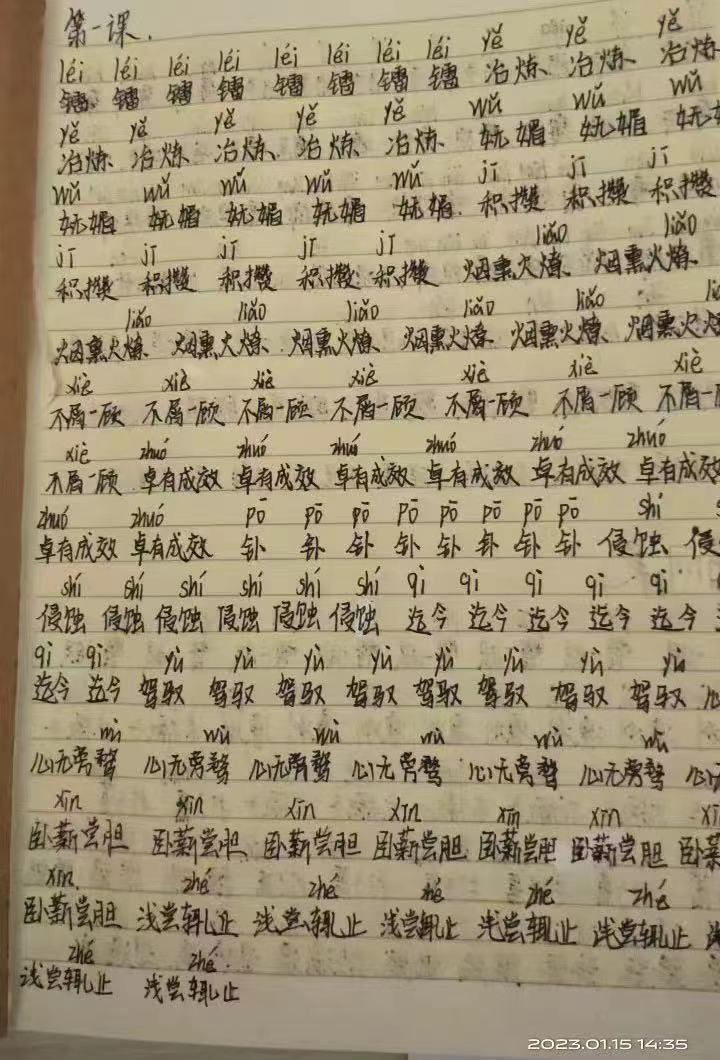 第一课.
léi léi léi léi léi léi léi léi yě yě yě
镭 镭 镭 镭 镭 镭 镭 镭 冶炼 冶炼 冶炼
yě yě yě yě yě wǔ wǔ wǔ
冶炼 冶炼 冶炼 冶炼 冶炼 妩媚 妩媚 妩媚
wǔ wǔ wǔ wǔ wǔ jī jī jī
妩媚 妩媚 妩媚 妩媚 妩媚 积攒 积攒 积攒
jī jī jī jī jī liǎo liǎo
积攒 积攒 积攒 积攒 积攒 烟熏火燎 烟熏火燎
liǎo liǎo liǎo liǎo liǎo liǎo
烟熏火燎 烟熏火燎 烟熏火燎 烟熏火燎 烟熏火燎 烟熏火燎
xiè xiè xiè xiè xiè xiè xiè
不屑一顾 不屑一顾 不屑一顾 不屑一顾 不屑一顾 不屑一顾 不屑一
xiè zhuó zhuó zhuó zhuó zhuó zhuó
不屑一顾 卓有成效 卓有成效 卓有成效 卓有成效 卓有成效 卓有成效
zhuó zhuó pō pō pō pō pō pō pō pō shí
卓有成效 卓有成效 钋 钋 钋 钋 钋 钋 钋 钋 侵蚀 侵
shí shí shí shí shí shí qì qì qì qì qì
侵蚀 侵蚀 侵蚀 侵蚀 侵蚀 侵蚀 迄今 迄今 迄今 迄今 迄今
qì qì yù yù yù yù yù yù yù yù
迄今 迄今 驾驭 驾驭 驾驭 驾驭 驾驭 驾驭 驾驭 驾驭 心
wù wù wù wù wù wù
心无旁骛 心无旁骛 心无旁骛 心无旁骛 心无旁骛 心无旁骛 心
xīn xīn xīn xīn xīn xīn xī
卧薪尝胆 卧薪尝胆 卧薪尝胆 卧薪尝胆 卧薪尝胆 卧薪尝胆 卧薪
xīn zhé zhé zhé zhé zhé
卧薪尝胆 浅尝辄止 浅尝辄止 浅尝辄止 浅尝辄止 浅尝辄止
zhé zhé
浅尝辄止 浅尝辄止
2023.01.15 14:35